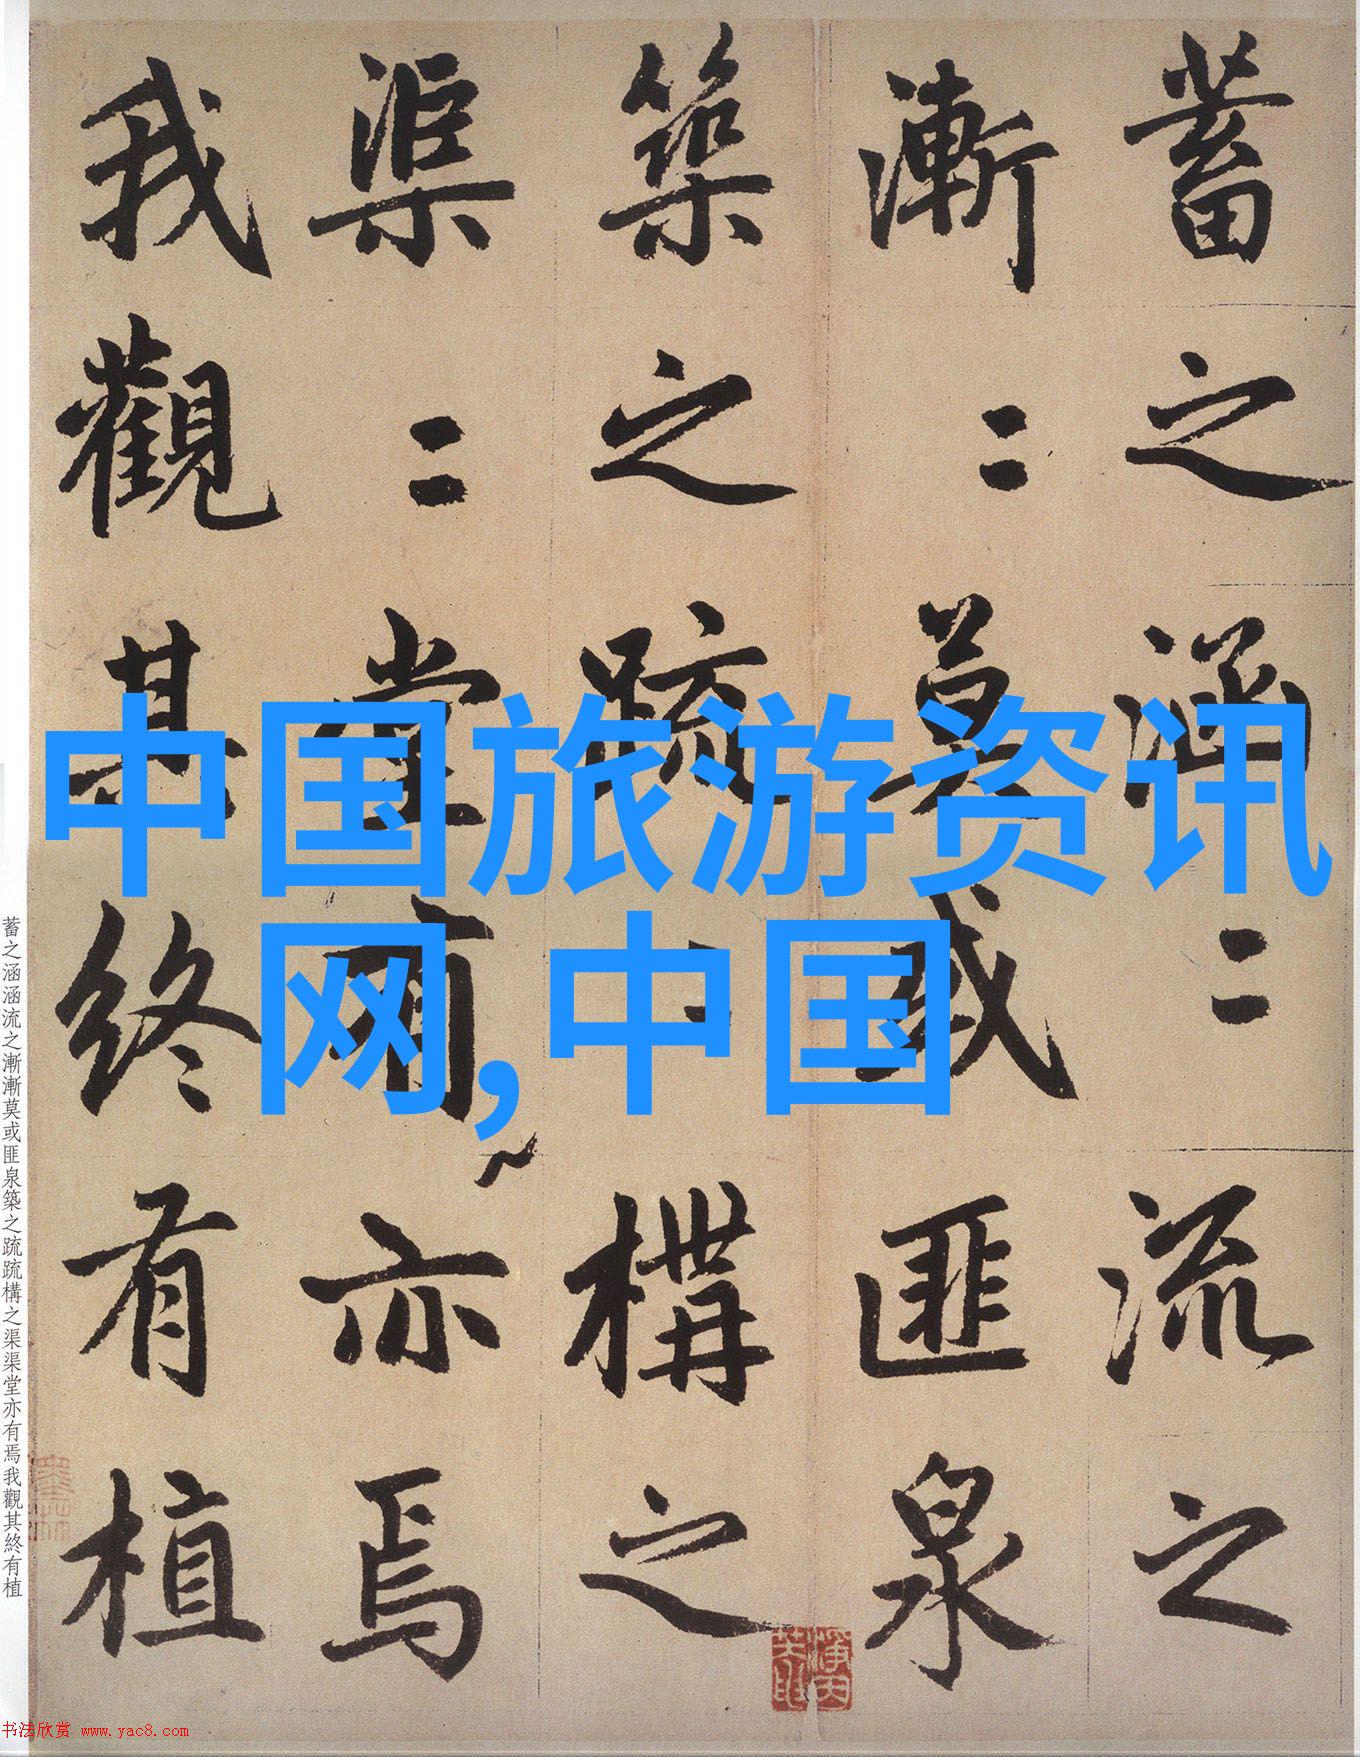 蓄之涵〻流之
漸〻莫或匪泉
築之疏〻構之
渠〻堂有亦焉
我觀其終有植
中国旅游资讯
网,中国
蓄之涵涵流之漸漸莫或匪泉築之疏疏構之渠渠堂亦有焉我觀其終有植
书法欣赏 www.yac8.com